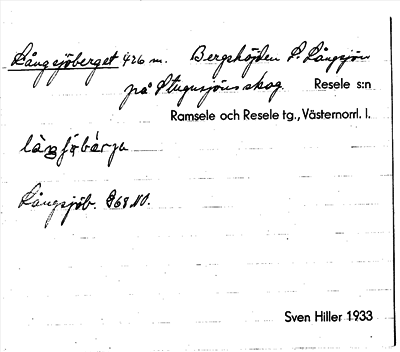 Långsjöberget 426 m. Bergshöjden S. Långsjön
på Stugusjöns skog. Resele s:n
Ramsele och Resele tg., Västernorrl. l.
Långsjöb. 868 NO.
Sven Hiller 1933